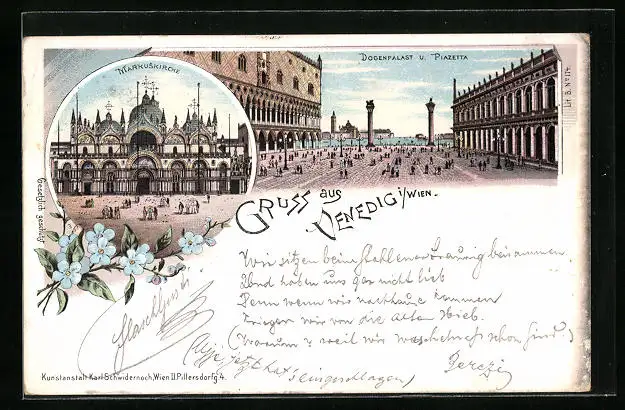 MARKUSKIRCHE
DOGENPALAST U. PIAZETTA
Lit. B. No 174.
Gesetzlich geschützt
GRUSS aus
VENEDIG i/WIEN.
Wir sitzen beim so traurig beisammen
Und haben uns gar nicht lieb
Denn wenn wir nachhause kommen
Kriegen wir von die alten Hieb.
(Warum? weil wir schon sind)
(Uje jetzt hat's eingeschlagen)
Kunstanstalt Karl Schwidernoch, Wien II. Pillersdorfg. 4.